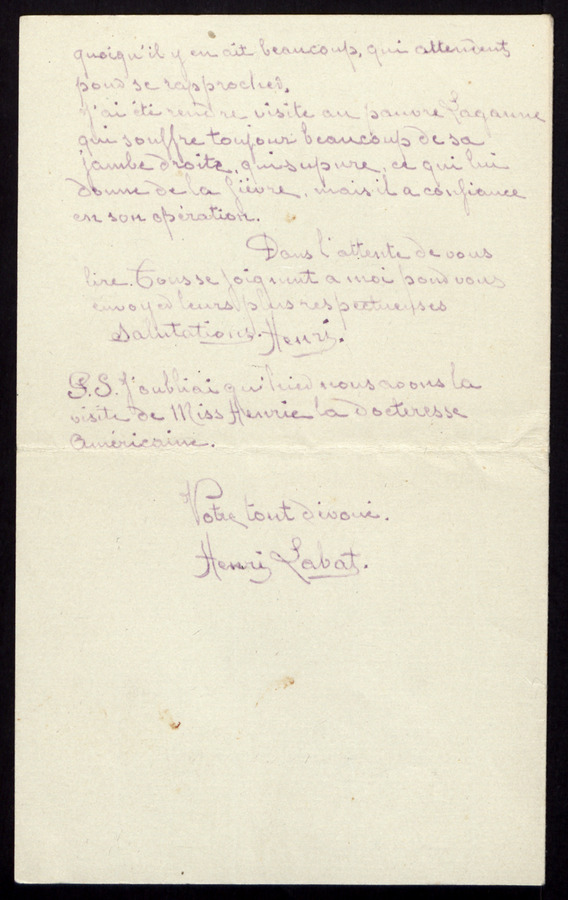 quoiqu'il y en ait beaucoup, qui attendent
pour se rapprocher.
J'ai été rendre visite au pauvre Laganne
qui souffre toujour beaucoup de sa
jambe droite, qui supure, ce qui lui
donne de la fièvre, mais il a confiance
en son opération.
Dans l'attente de vous
lire. Tous se joignent a moi pour vous
envoyer leurs plus respectueuses
salutations. Henri.
P.S. J'oubliai qu'hier nous avons la
visite de Miss Henrie la docteresse
Américaine.
Votre tout dévoué.
Henri Labat.